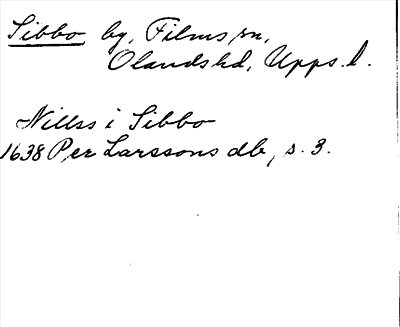 Sibbo by, Films sn,
Olands hd, Upps. l.
Nillss i Sibbo
1638 Per Larssons db, s. 3.